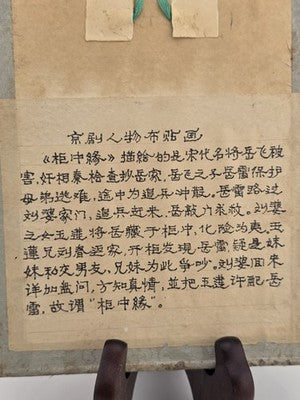 京剧人物布贴画
《柜中缘》描绘的是宋代名将岳飞被
害，奸相秦桧查抄岳家，岳飞之子岳雷保护
母弟逃难，途中为追兵冲散。岳雷路过
刘婆家门，追兵赶来，岳敲门求救。刘婆
之女玉莲，将岳藏于柜中，化险为夷。玉
莲兄刘春返家，开柜发现岳雷疑是妹
妹私交男友，兄妹为此争吵。刘婆回来
详加盘问，方知真情，並把玉莲许配岳
雷，故谓“柜中缘”。